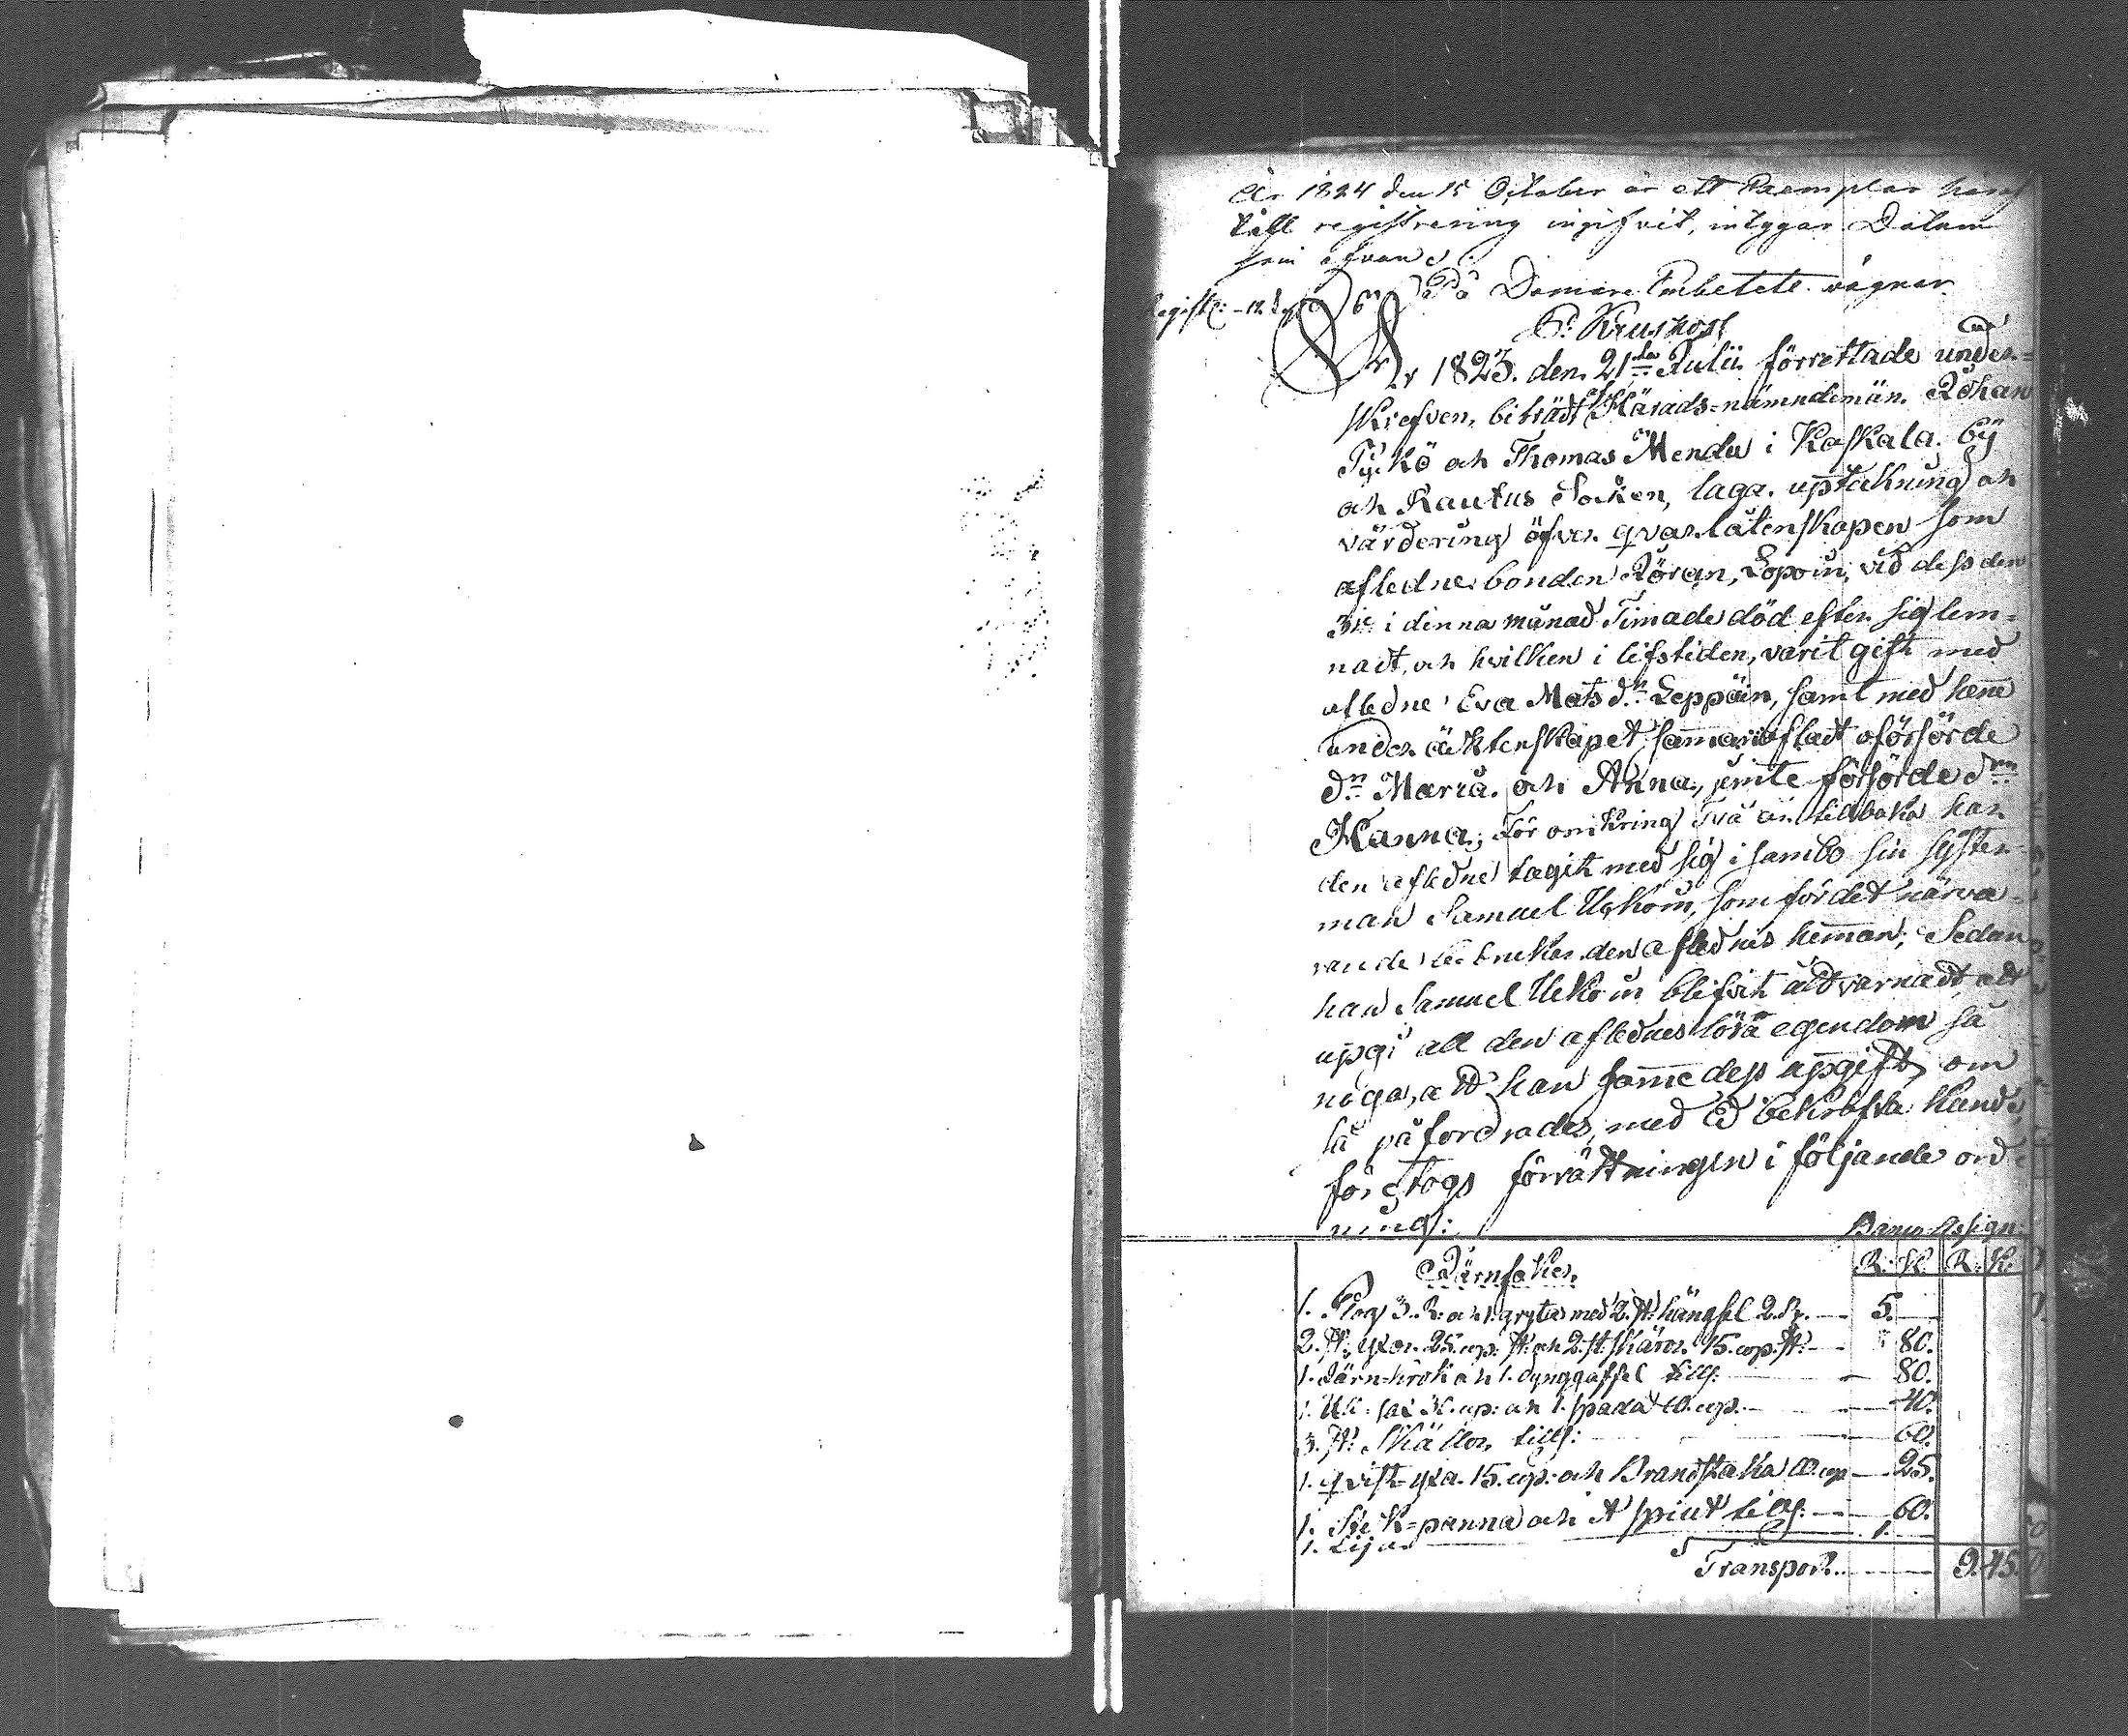 År 1824 den 15 October är ett Exemplar häraf
till registrering ingifvit, intygar Datum
som ofvan
På Domare Embetets vägnar
År 1823. den 21sta Julii förrettade under=
skrefven, biträdt af Härads=nämndemän Johan
Pyckö och Thomas Mendu i Kaskala by
och Rautus Socken, laga upteckning och
värdering öfver qvarlåtenskapen som
afledne bonden Jöran Lopoin, vid dess den
i denna månad Timade död efter sig lem=
nadt, och hvilken i lifstiden, varit gift med
afledne Eva Mats dr Leppäin, samt med henne
under äktenskapet sammanafladt oförsörde
dr Maria och Anna, jemte försörde dr
Hanna; För omkring Två år tillbaka har
den afledne tagit med sig i sambo sin syster
man Samuel Ukkoin, som för det närva=
rande brukar den aflednes hemman; Sedan
han Samuel Ukkoin blifvit åtvarnadt att
upgi all den aflednes lösa egendom så
noga, att han samme dess upgift, om
så påfordrades, med Ed bekräfta kunde,
företogs förrättningen i följande ord
ning:
Banco Assign:
R. K. R. K.
Järnsaker.
1. Plog 3. R: och 1. gryta med 2. st: hängsel 2. R. 5.
2. st: yxor 25. cop: st: och 2. st skäror 15. cop: st: 80.
1. Järn=krok och 1. dynggaffel tills: 80.
1. och 1. spada 10. cop. 40.
3. st: Skällor tills: 60.
1. qvist=yxa 15. cop: och Brandstaka 10. cop 25.
1. Stek=panna och it spiut tills: 60.
1. Lija 1.
Transport. 9. 45.